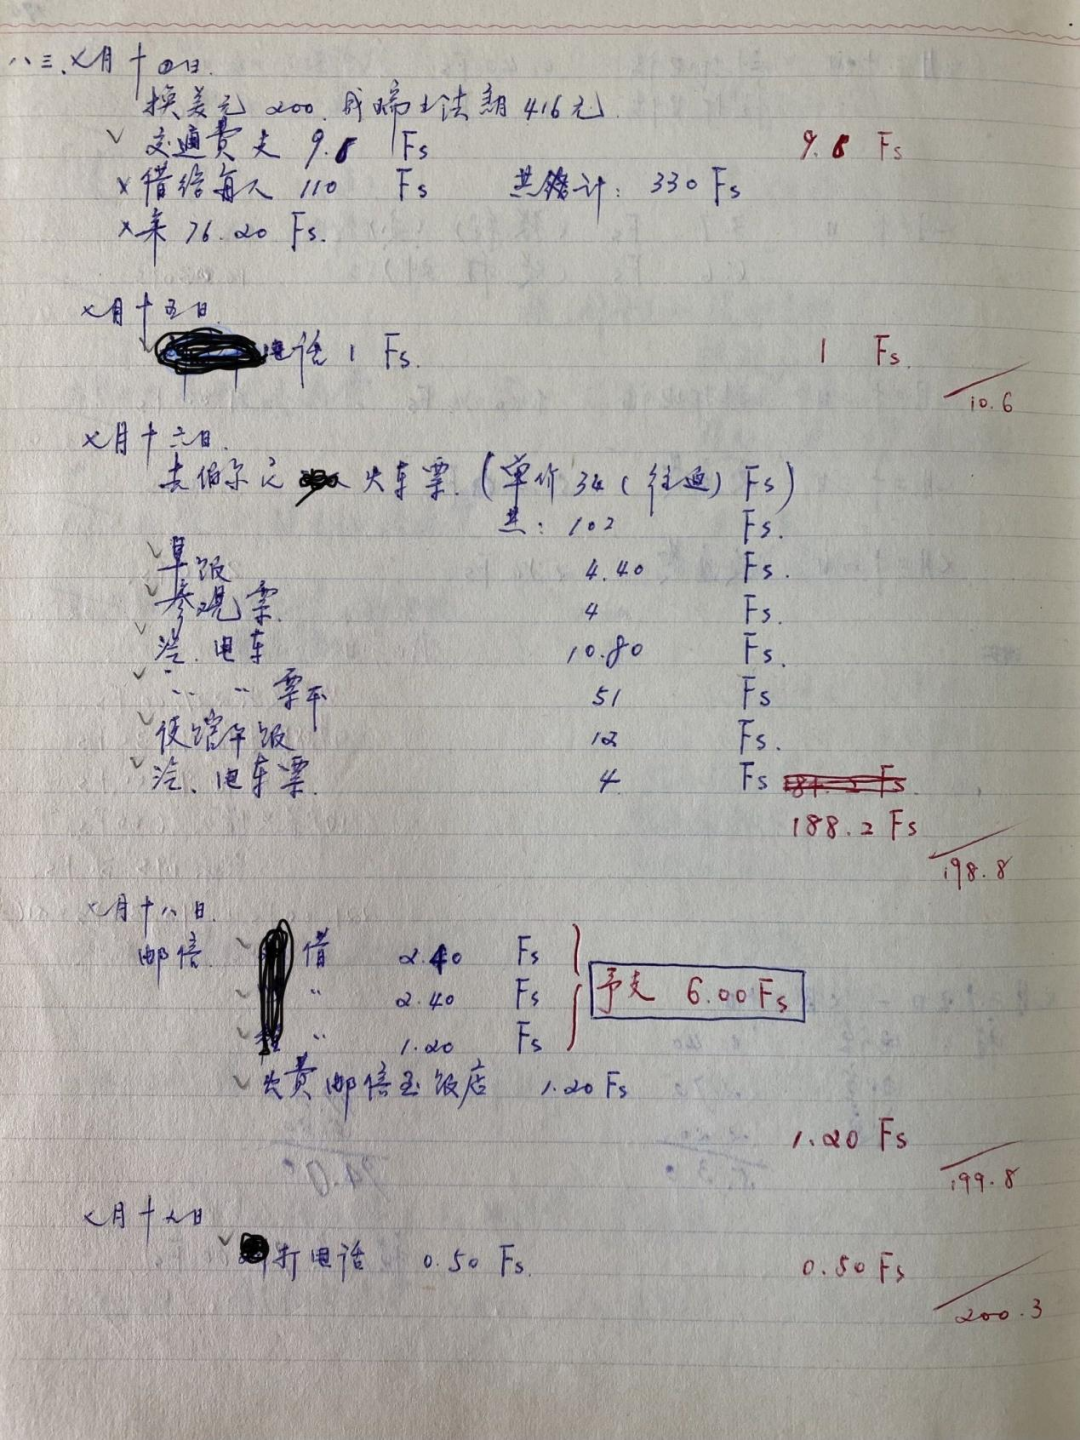 八三.七月十四日.
换美元 200. 成瑞士法朗 416元.
交通费支 9.6 Fs 9.6 Fs
借给每人 110 Fs 共计: 330 Fs
余 76.20 Fs.
七月十五日
电话 1 Fs. 1 Fs.
10.6
七月十六日.
去伯尔尼 火车票.(单价 34 (往返) Fs)
共: 102 Fs.
早饭 4.40 Fs.
参观票. 4 Fs.
汽.电车 10.80 Fs.
〃 〃 票 51 Fs
使馆午饭 12 Fs.
汽、电车票. 4 Fs
188.2 Fs
198.8
七月十八日.
邮信. 借 2.40 Fs
〃 2.40 Fs
予支 6.00 Fs
〃 1.20 Fs
公费邮信至饭店 1.20 Fs
1.20 Fs
199.8
七月十九日
打电话 0.50 Fs. 0.50 Fs
200.3